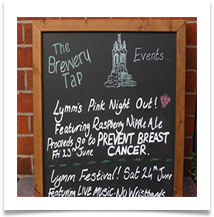 The
Brewery
Tap
Events...
Lymm's Pink Night Out!
Featuring Raspberry Nipple Ale
Proceeds go to PREVENT BREAST
Fri 23rd June CANCER.
Lymm Festival!! Sat 24th June
Featuring LIVE MUSIC - No Wristbands